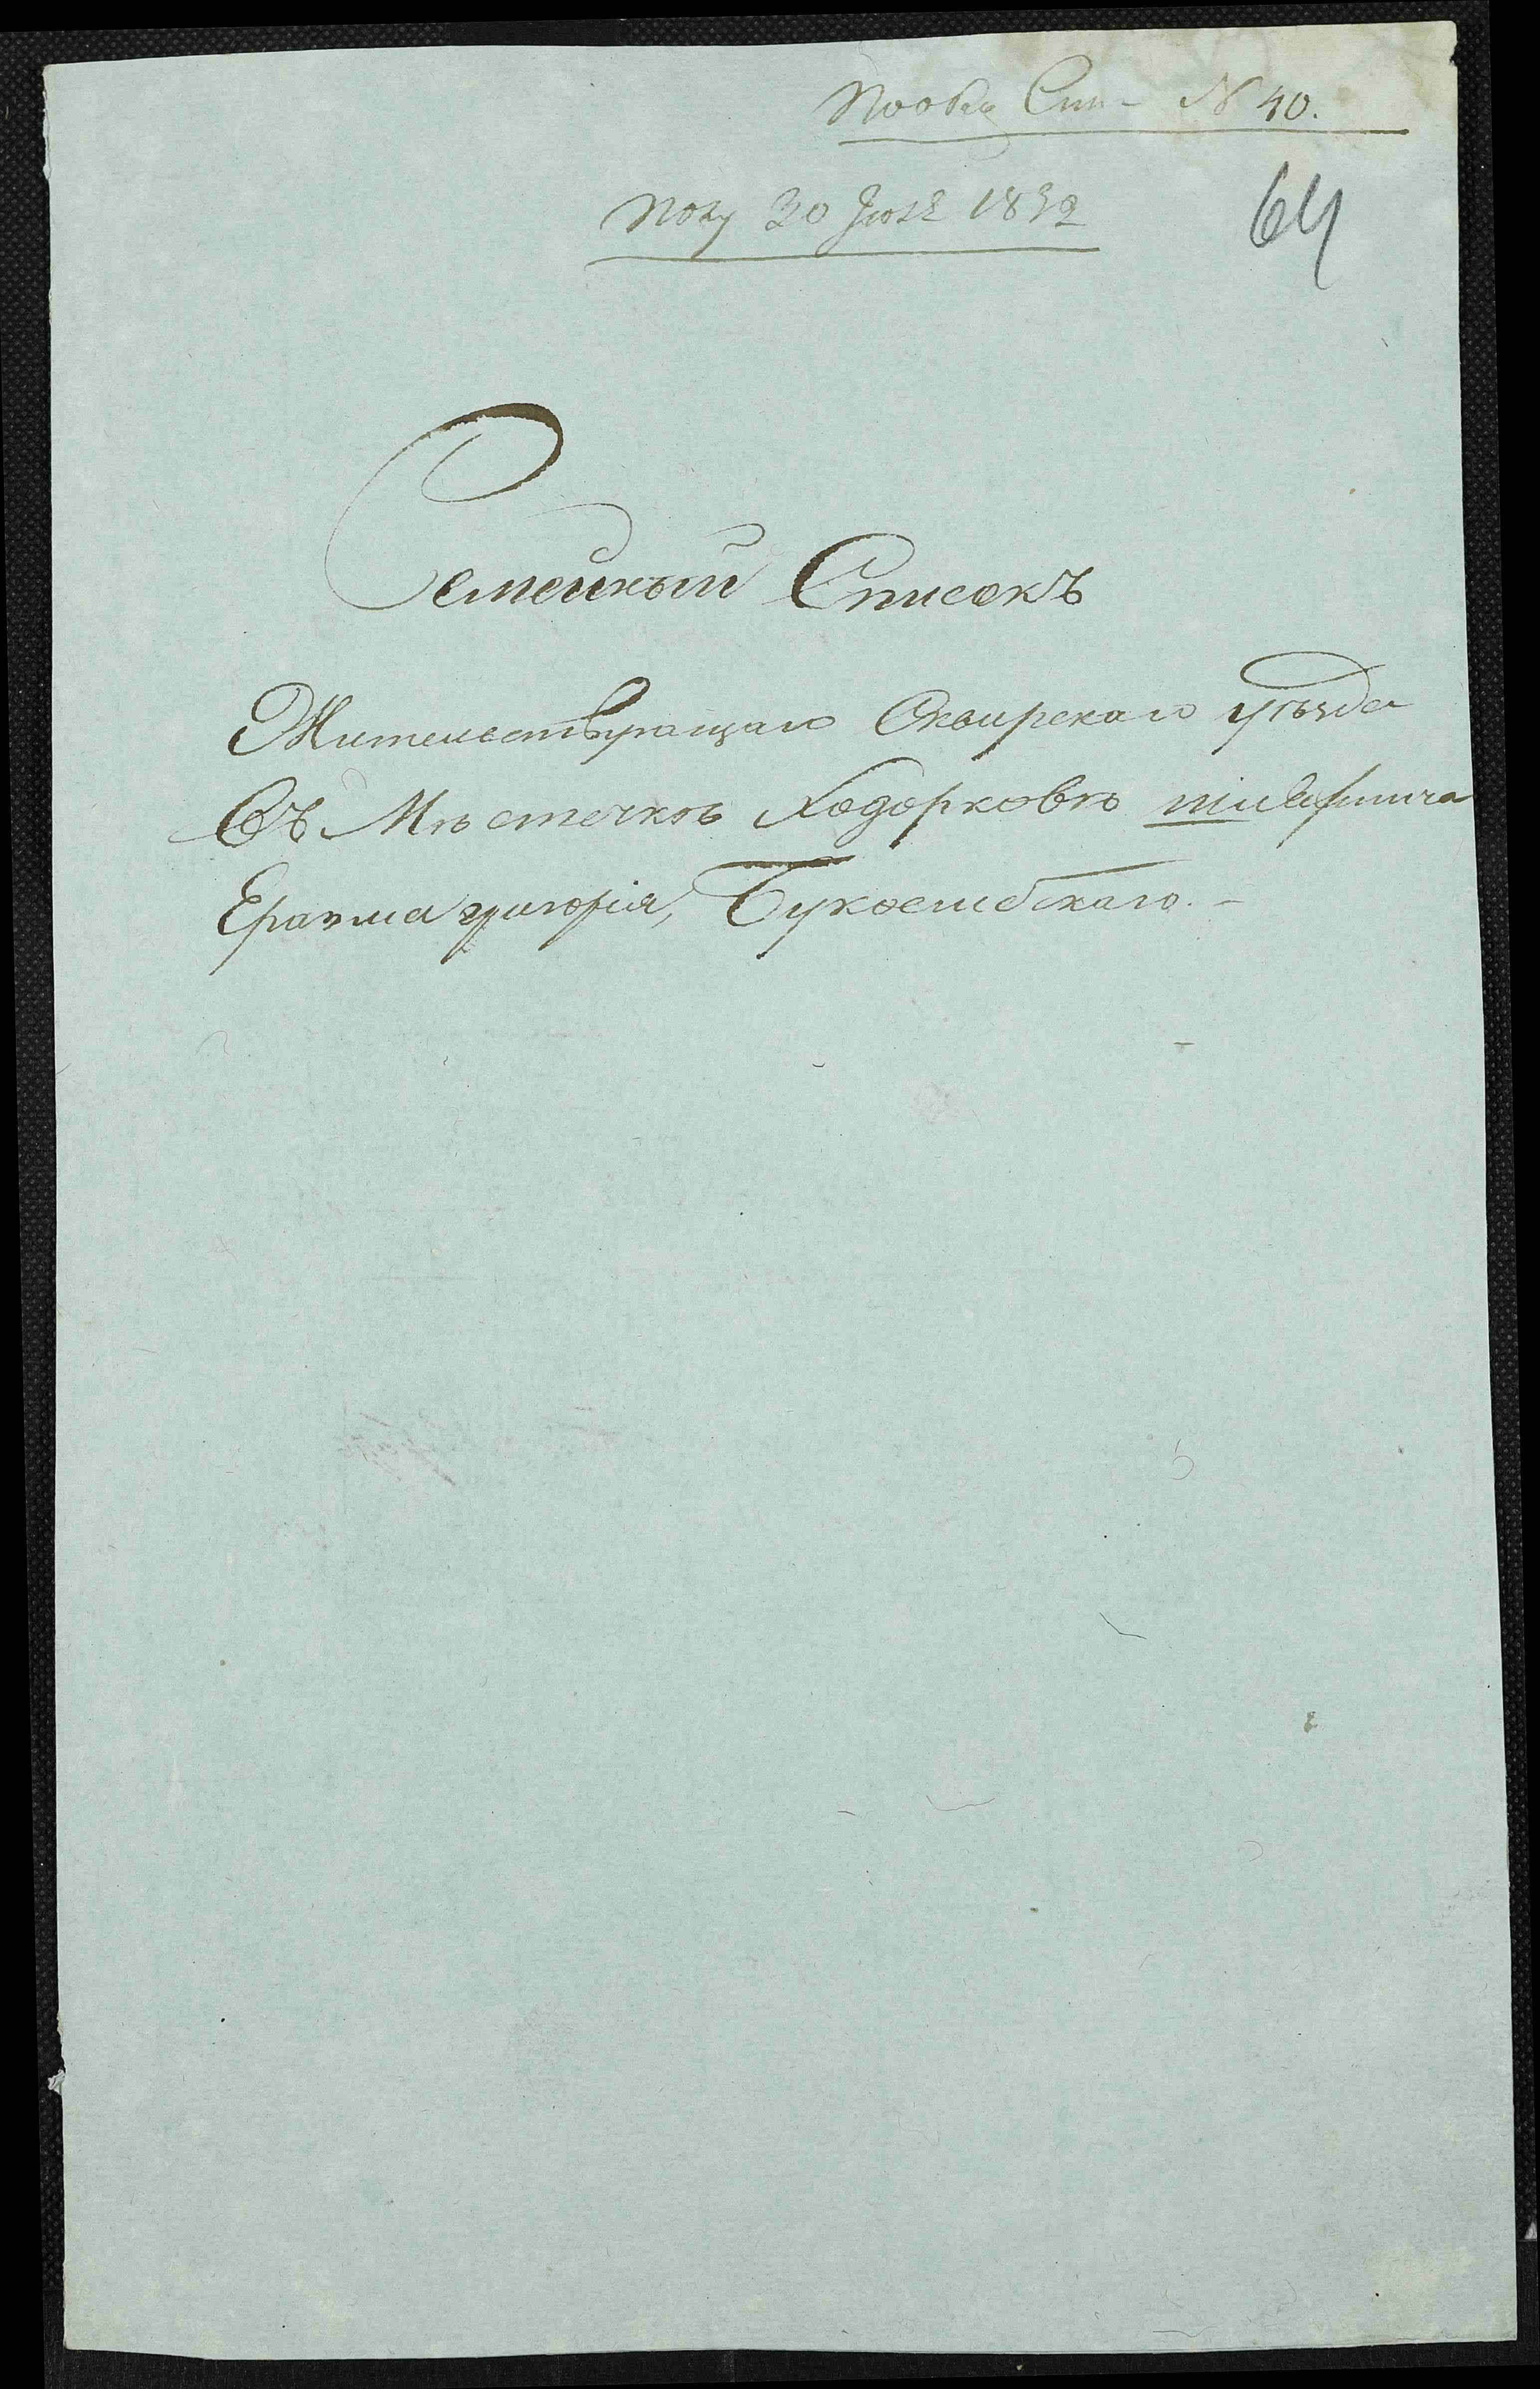 По обы Спи- N 40.
Полу 30 Июля 1832
64
Семейный Списокъ
Жительствующаго Сквирскаго уѣзда
Въ Мѣстечкѣ Ходорковѣ
Еразма григорія, Букоемскаго.-